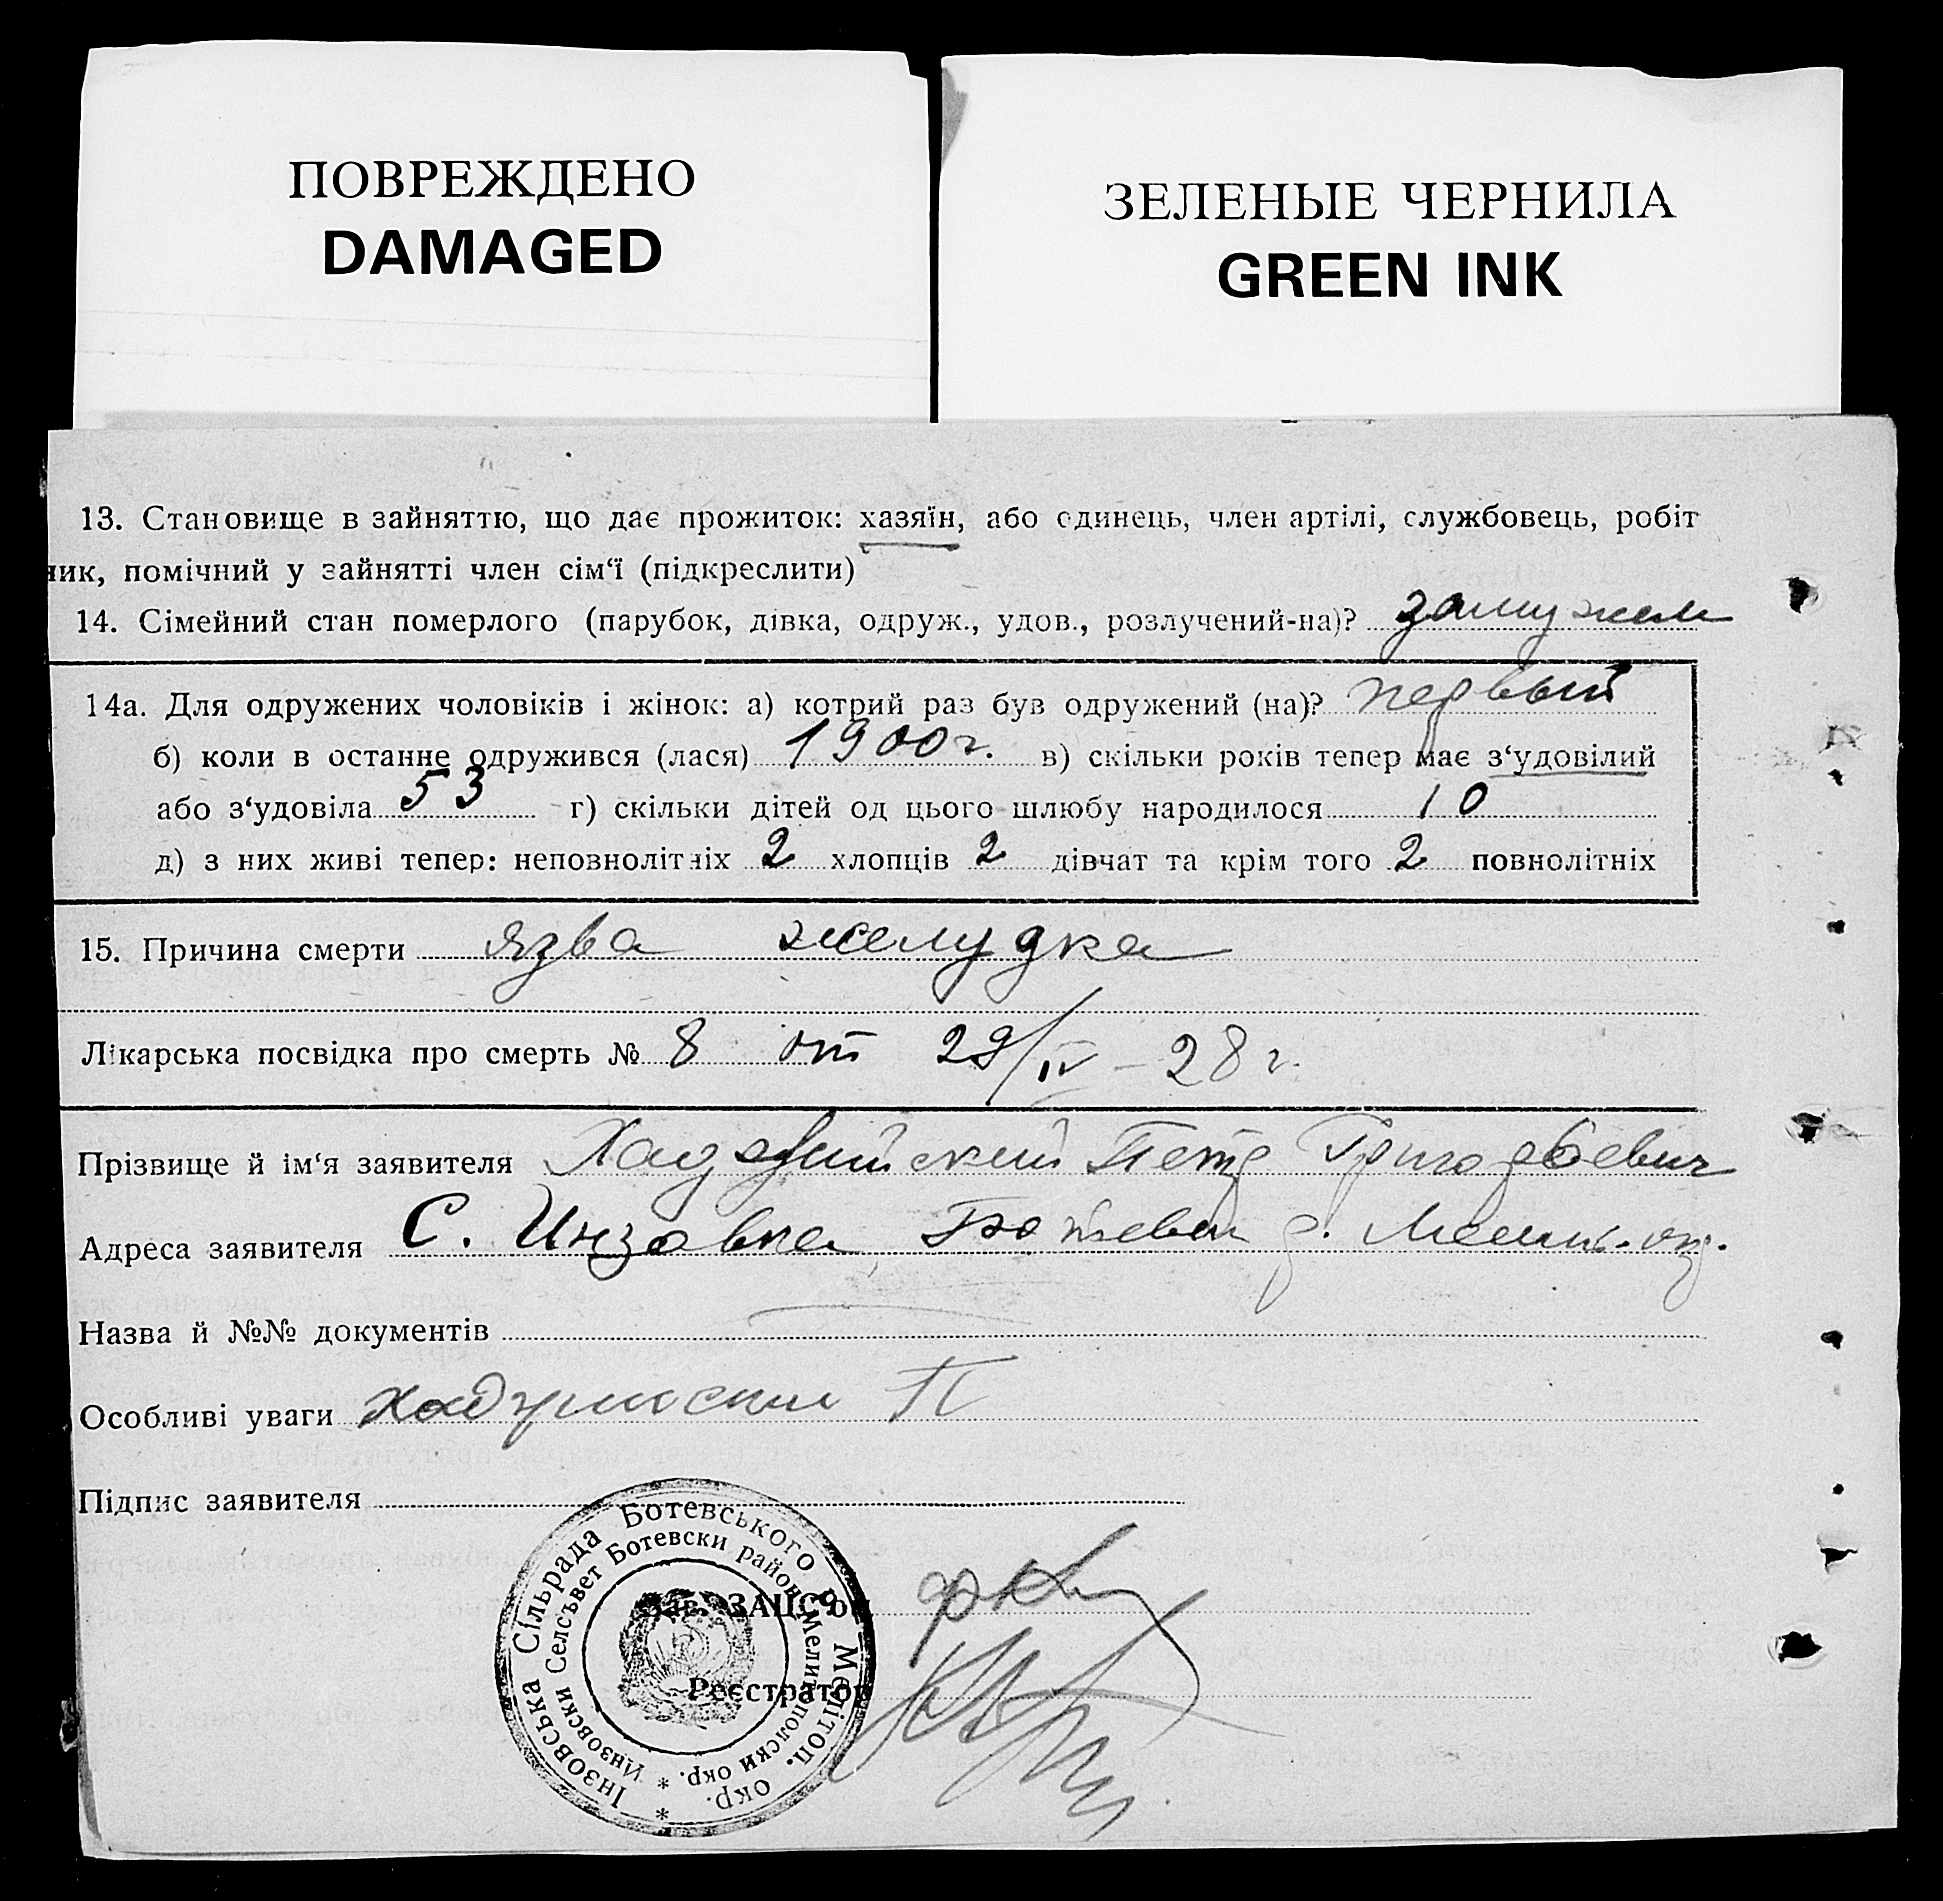 ПОВРЕЖДЕНО
DAMAGED
ЗЕЛЕНЫЕ ЧЕРНИЛА
GREEN INK
13. Становище в зайняттю, що дає прожиток: хазяїн, або єдинець, член артілі, службовець, робіт
ник, помічний у зайнятті член сім'ї (підкреслити)
14. Сімейний стан померлого (парубок, дівка, одруж., удов., розлучений-на)? замужем
14а. Для одружених чоловіків і жінок: а) котрий раз був одружений (на)? первый
б) коли в останне одружився (лася) 1900 г. в) скільки років тепер має з'удовілий
або з'удовіла 53 г) скільки дітей од цього шлюбу народилося 10
д) з них живі тепер: неповнолітніх 2 хлопців 2 дівчат та крім того 2 повнолітніх
15. Причина смерти язва желудка
Лікарська посвідка про смерть № 8 от 29/IV - 28 г.
Прізвище й ім'я заявителя Петр Григорьевич
Адреса заявителя С. Инзовка Ботевск р. окр.
Назва й №№ документів
Особливі уваги П
Підпис заявителя
Зав. ЗАЦС'ом
Реєстратор
Інзовська Сільрада Ботевського р. Мелітоп. окр. *
Инзовски Селсъвет Ботевски район Мелитополски окр. *